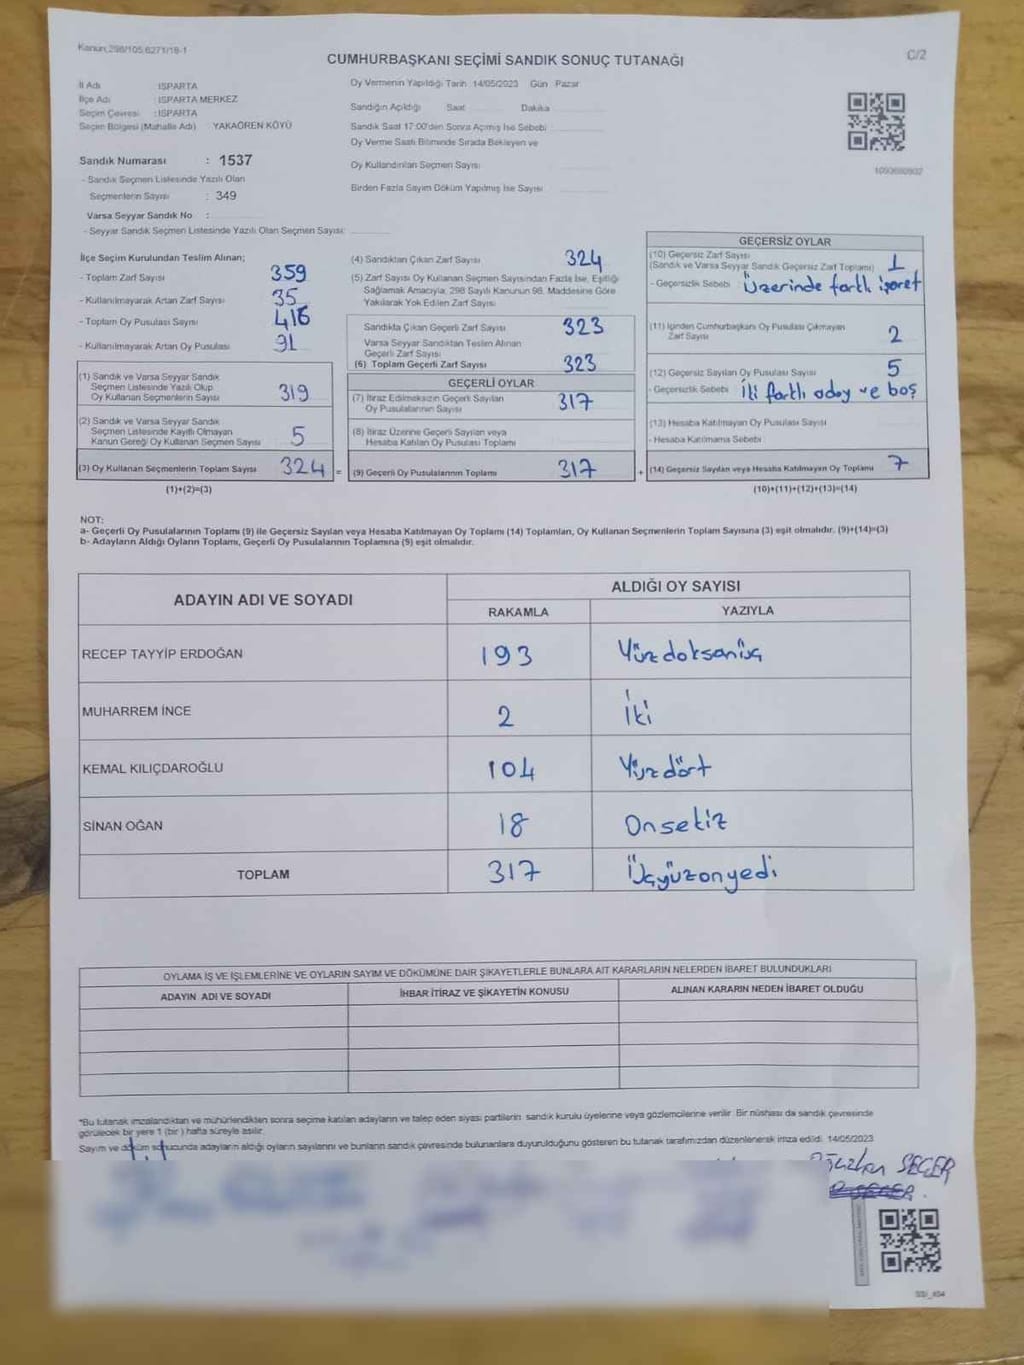 Kanun,298/105,6271/18-1
CUMHURBAŞKANI SEÇİMİ SANDIK SONUÇ TUTANAĞI
C/2
İl Adı : ISPARTA
İlçe Adı : ISPARTA MERKEZ
Seçim Çevresi : ISPARTA
Seçim Bölgesi (Mahalle Adı) : YAKAÖREN KÖYÜ
Sandık Numarası : 1537
- Sandık Seçmen Listesinde Yazılı Olan
Seçmenlerin Sayısı : 349
Varsa Seyyar Sandık No :
- Seyyar Sandık Seçmen Listesinde Yazılı Olan Seçmen Sayısı:
Oy Vermenin Yapıldığı Tarih : 14/05/2023 Gün : Pazar
Sandığın Açıldığı Saat Dakika
Sandık Saat 17:00'den Sonra Açılmış İse Sebebi
Oy Verme Saati Bitiminde Sırada Bekleyen ve
Oy Kullandırılan Seçmen Sayısı
Birden Fazla Sayım Döküm Yapılmış İse Sayısı
İlçe Seçim Kurulundan Teslim Alınan;
- Toplam Zarf Sayısı 359
- Kullanılmayarak Artan Zarf Sayısı 35
- Toplam Oy Pusulası Sayısı 416
- Kullanılmayarak Artan Oy Pusulası 91
(1) Sandık ve Varsa Seyyar Sandık
Seçmen Listesinde Yazılı Olup
Oy Kullanan Seçmenlerin Sayısı 319
(2) Sandık ve Varsa Seyyar Sandık
Seçmen Listesinde Kayıtlı Olmayan
Kanun Gereği Oy Kullanan Seçmen Sayısı 5
(3) Oy Kullanan Seçmenlerin Toplam Sayısı 324 =
(1)+(2)=(3)
(4) Sandıktan Çıkan Zarf Sayısı 324
(5) Zarf Sayısı Oy Kullanan Seçmen Sayısından Fazla İse, Eşitliği
Sağlamak Amacıyla, 298 Sayılı Kanunun 98. Maddesine Göre
Yakılarak Yok Edilen Zarf Sayısı
Sandıkla Çıkan Geçerli Zarf Sayısı 323
Varsa Seyyar Sandıktan Teslim Alınan
Geçerli Zarf Sayısı
(6) Toplam Geçerli Zarf Sayısı 323
GEÇERLİ OYLAR
(7) İtiraz Edilmeksizin Geçerli Sayılan
Oy Pusulalarının Sayısı 317
(8) İtiraz Üzerine Geçerli Sayılan veya
Hesaba Katılan Oy Pusulası Toplamı
(9) Geçerli Oy Pusulalarının Toplamı 317 +
GEÇERSİZ OYLAR
(10) Geçersiz Zarf Sayısı
(Sandık ve Varsa Seyyar Sandık Geçersiz Zarf Toplamı) 1
- Geçersizlik Sebebi : Üzerinde farklı işaret
(11) İçinden Cumhurbaşkanı Oy Pusulası Çıkmayan
Zarf Sayısı 2
(12) Geçersiz Sayılan Oy Pusulası Sayısı 5
- Geçersizlik Sebebi : İki farklı aday ve boş
(13) Hesaba Katılmayan Oy Pusulası Sayısı
- Hesaba Katılmama Sebebi
(14) Geçersiz Sayılan veya Hesaba Katılmayan Oy Toplamı 7
(10)+(11)+(12)+(13)=(14)
NOT:
a- Geçerli Oy Pusulalarının Toplamı (9) ile Geçersiz Sayılan veya Hesaba Katılmayan Oy Toplamı (14) Toplamları, Oy Kullanan Seçmenlerin Toplam Sayısına (3) eşit olmalıdır. (9)+(14)=(3)
b- Adayların Aldığı Oyların Toplamı, Geçerli Oy Pusulalarının Toplamına (9) eşit olmalıdır.
ADAYIN ADI VE SOYADI
ALDIĞI OY SAYISI
RAKAMLA YAZIYLA
RECEP TAYYİP ERDOĞAN 193 Yüzdoksanüç
MUHARREM İNCE 2 İki
KEMAL KILIÇDAROĞLU 104 Yüzdört
SİNAN OĞAN 18 Onsekiz
TOPLAM 317 Üçyüzonyedi
OYLAMA İŞ VE İŞLEMLERİNE VE OYLARIN SAYIM VE DÖKÜMÜNE DAİR ŞİKAYETLERLE BUNLARA AİT KARARLARIN NELERDEN İBARET BULUNDUKLARI
ADAYIN ADI VE SOYADI İHBAR İTİRAZ VE ŞİKAYETİN KONUSU ALINAN KARARIN NEDEN İBARET OLDUĞU
*Bu tutanak imzalandıktan ve mühürlendikten sonra seçime katılan adayların ve talep eden siyasi partilerin sandık kurulu üyelerine veya gözlemcilerine verilir. Bir nüshası da sandık çevresinde
görülecek bir yere 1 (bir) hafta süreyle asılır.
Sayım ve döküm sonucunda adayların aldığı oyların sayılarını ve bunların sandık çevresinde bulunanlara duyurulduğunu gösteren bu tutanak tarafımızdan düzenlenerek imza edildi. 14/05/2023
SEÇER